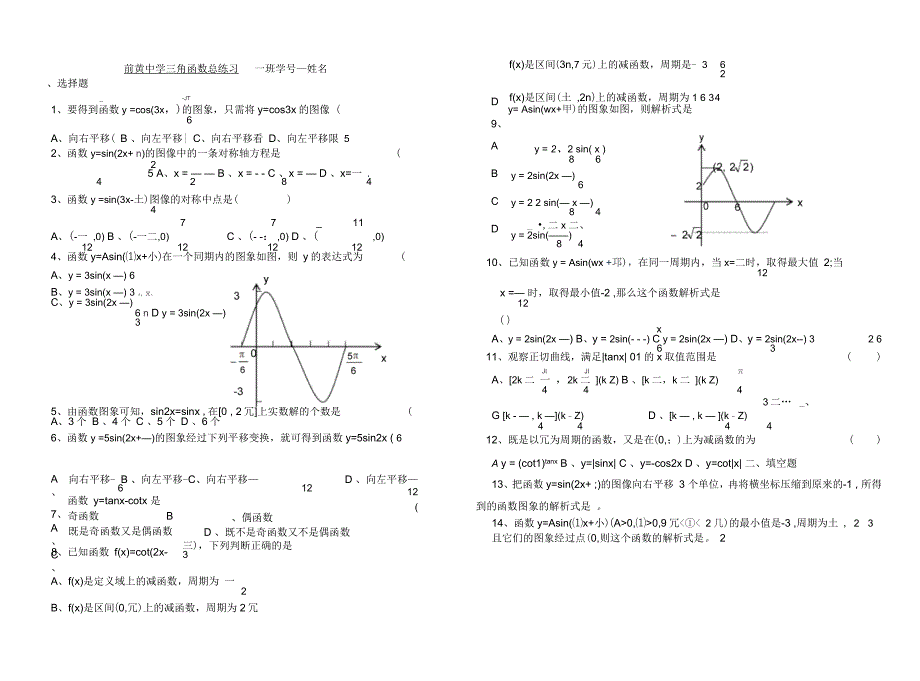 前黄中学三角函数总练习 一班学号一姓名
、选择题
1、要得到函数 y =cos(3x，)的图象，只需将 y=cos3x 的图像 (
6
A、向右平移( B 、向左平移| C、向右平移看 D、向左平移限 5
2、函数 y=sin(2x+ n)的图像中的一条对称轴方程是 (
2
5 A、x = — — B 、x = - - C 、x = — D 、x=一 .
4 2 8 4
3、函数 y =sin(3x-土)图像的对称中点是( )
4
7 7 11
A、(-一 ,0) B 、(-一二,0) C 、(- -：,0) D 、( ,0)
12 12 12 12
4、函数 y=Asin(⑴x+小)在一个同期内的图象如图，则 y 的表达式为 (
A、y = 3sin(x —) 6
B、y = 3sin(x —) 3
C、y = 3sin(2x —)
6 n D y = 3sin(2x —)
3
3
y
0
x
-3
π
6
5π
6
5、由函数图象可知，sin2x=sinx , 在[0 , 2 冗]上实数解的个数是 (
A、3 个 B 、4 个 C 、5 个 D 、6 个
6、函数 y =5sin(2x+—)的图象经过下列平移变换，就可得到函数 y=5sin2x ( 6
A 向右平移- B 、向左平移-C、向右平移— D 、向左平移—
、 6 12 12
函数 y=tanx-cotx 是 (
7、奇函数 B 、偶函数
A 既是奇函数又是偶函数 D 、既不是奇函数又不是偶函数
、
8、已知函数 f(x)=cot(2x- 三)，下列判断正确的是
C 3
、
A、f(x)是定义域上的减函数，周期为 一
2
B、f(x)是区间(0,冗)上的减函数，周期为 2 冗
f(x)是区间(3n,7 元)上的减函数，周期是- 3 6
2
D f(x)是区间(土 ,2n)上的减函数，周期为 1 6 34
y= Asin(wx+甲)的图象如图，则解析式是
9、
A y = 2、2 sin( x )
8 6
B y = 2sin(2x —)
6
C y = 2 2 sin(— x —)
8 4
D 二 x 二、
y = 2sin(——)
8 4
y
(2, 2√2)
2
0
6
x
- 2√2
10、已知函数 y = Asin(wx +邛)，在同一周期内，当 x=二时，取得最大值 2;当
12
x =— 时，取得最小值-2 ,那么这个函数解析式是
12
( )
x
A、y = 2sin(2x —) B、y = 2sin(- - -) C y = 2sin(2x —) D、y = 2sin(2x--) 3 2 6
6 3
11、观察正切曲线，满足|tanx| 01 的 x 取值范围是 ( )
JI JI π
A、[2k 二 一 ，2k 二 ](k Z) B 、[k 二，k 二 ](k Z)
4 4 4
3 二… _、
G [k - — , k —](k - Z) D 、[k — , k — ](k - Z)
4 4 4 4
12、既是以冗为周期的函数，又是在(0,；)上为减函数的为 ( )
A y = (cot1)tanx B 、y=|sinx| C 、y=-cos2x D 、y=cot|x| 二、填空题
13、把函数 y=sin(2x+ ;)的图像向右平移 3 个单位，冉将横坐标压缩到原来的-1 , 所得
到的函数图象的解析式是 。
14、函数 y=Asin(⑴x+小)(A>0,⑴>0,9 冗<①< 2 几)的最小值是-3 ,周期为土 ， 2 3
且它们的图象经过点(0,则这个函数的解析式是。 2